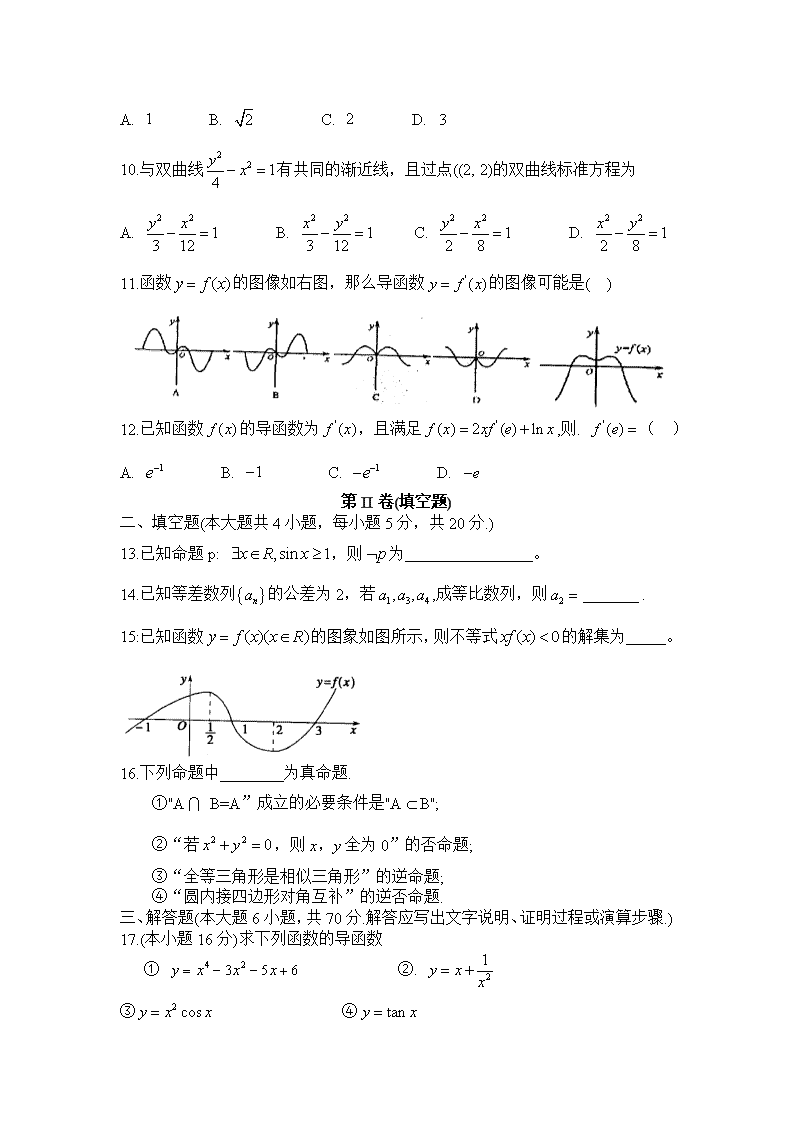 A. 1 B. √2 C. 2 D. 3
10.与双曲线 y²/4 − x² = 1有共同的渐近线，且过点((2, 2)的双曲线标准方程为
A. y²/3 − x²/12 = 1 B. x²/3 − y²/12 = 1 C. y²/2 − x²/8 = 1 D. x²/2 − y²/8 = 1
11.函数 y = f(x)的图像如右图，那么导函数 y = f'(x)的图像可能是( )
y O x A y O x B y O x C y O x D y y=f(x) O x
12.已知函数 f(x)的导函数为 f'(x)，且满足 f(x) = 2xf'(e) + ln x ,则. f'(e) = ( )
A. e⁻¹ B. −1 C. −e⁻¹ D. −e
第 II 卷(填空题)
二、填空题(本大题共 4 小题，每小题 5 分，共 20 分.)
13.已知命题 p: ∃x∈R, sin x ≥ 1，则 ¬p 为________________。
14.已知等差数列{aₙ}的公差为 2，若 a₁, a₃, a₄ ,成等比数列，则 a₂ = _______ .
15:已知函数 y = f(x)(x∈R)的图象如图所示，则不等式 xf(x) < 0的解集为_____。
y y=f(x)
−1 O 1/2 1 2 3 x
16.下列命题中________为真命题.
①"A∩ B=A”成立的必要条件是"A⊂B";
②“若 x² + y² = 0，则 x，y 全为 0”的否命题;
③“全等三角形是相似三角形”的逆命题;
④“圆内接四边形对角互补”的逆否命题.
三、解答题(本大题 6 小题，共 70 分.解答应写出文字说明、证明过程或演算步骤.)
17.(本小题 16 分)求下列函数的导函数
① y = x⁴ − 3x² − 5x + 6 ②. y = x + 1/x²
③ y = x² cos x ④ y = tan x